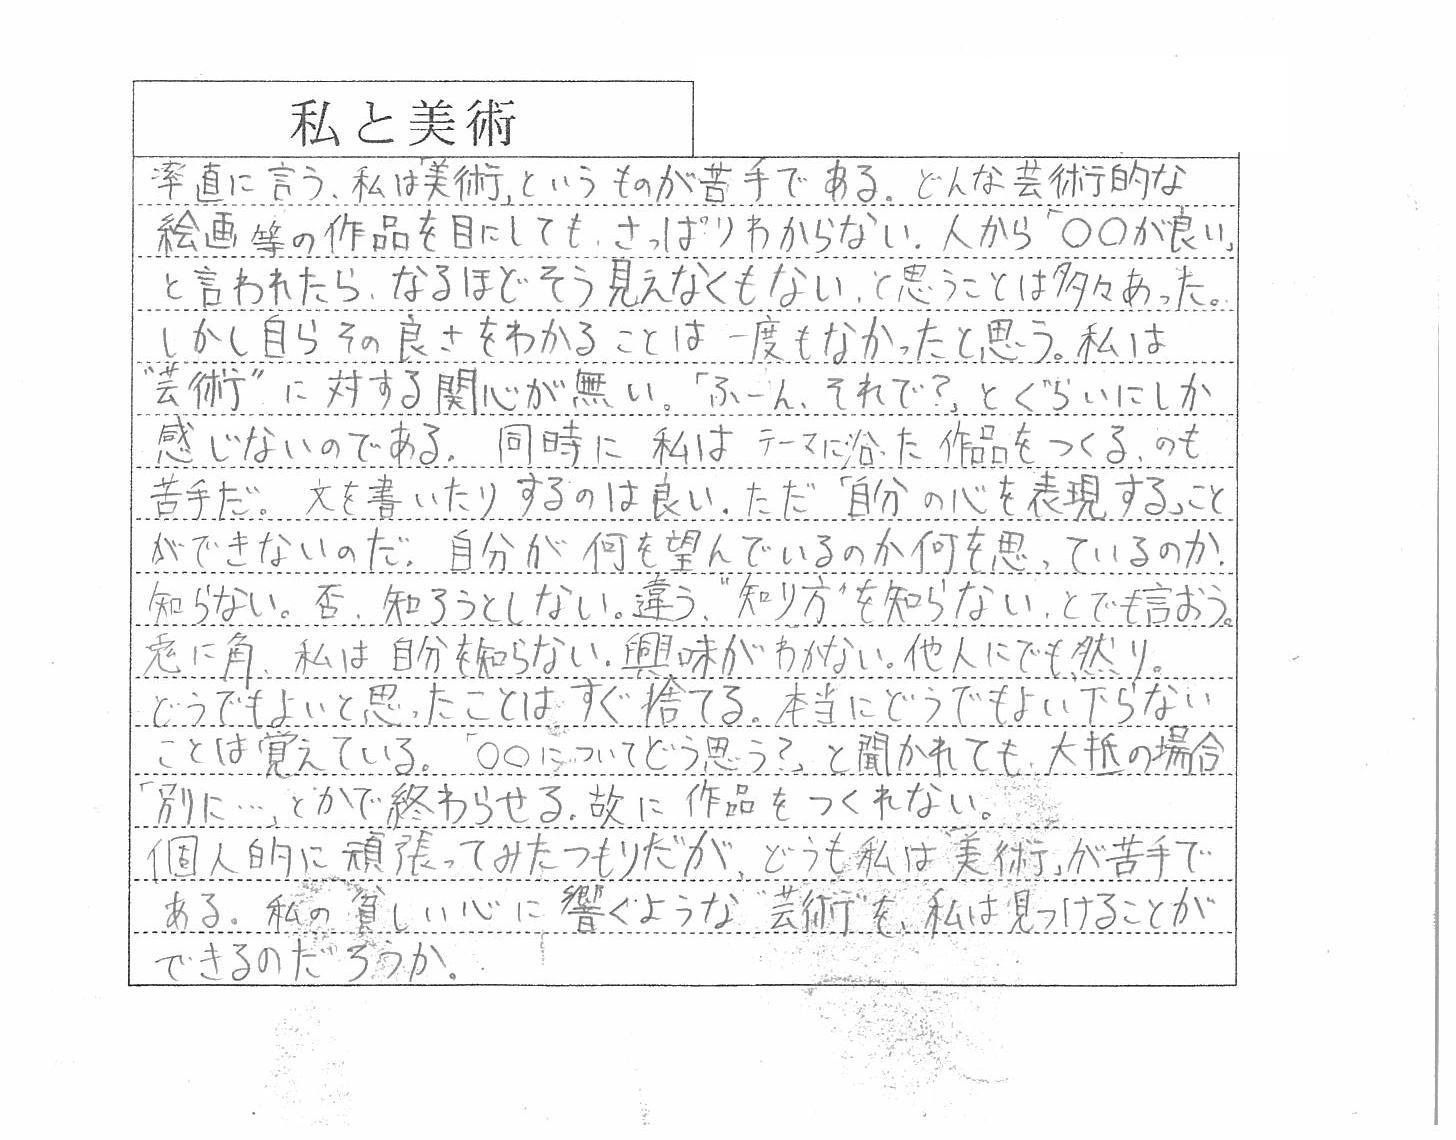 私と美術
率直に言う、私は「美術」というものが苦手である。どんな芸術的な
絵画等の作品を目にしても、さっぱりわからない。人から「〇〇が良い」
と言われたら、なるほどそう見えなくもない、と思うことは多々あった。
しかし自らその良さをわかることは一度もなかったと思う。私は
“芸術”に対する関心が無い。「ふーん、それで？」とぐらいにしか
感じないのである。同時に私はテーマに沿った作品をつくる、のも
苦手だ。文を書いたりするのは良い。ただ「自分の心を表現する」こと
ができないのだ。自分が何を望んでいるのか何を思っているのか、
知らない。否、知ろうとしない。違う、“知り方”を知らない、とでも言おう。
兎に角、私は自分を知らない。興味がわかない。他人にでも然り。
どうでもよいと思ったことはすぐ捨てる。本当にどうでもよい下らない
ことは覚えている。「〇〇についてどう思う？」と聞かれても、大抵の場合
「別に…」とかで終わらせる。故に作品をつくれない。
個人的に頑張ってみたつもりだが、どうも私は「美術」が苦手で
ある。私の貧しい心に響ぐような“芸術”を、私は見つけることが
できるのだろうか。